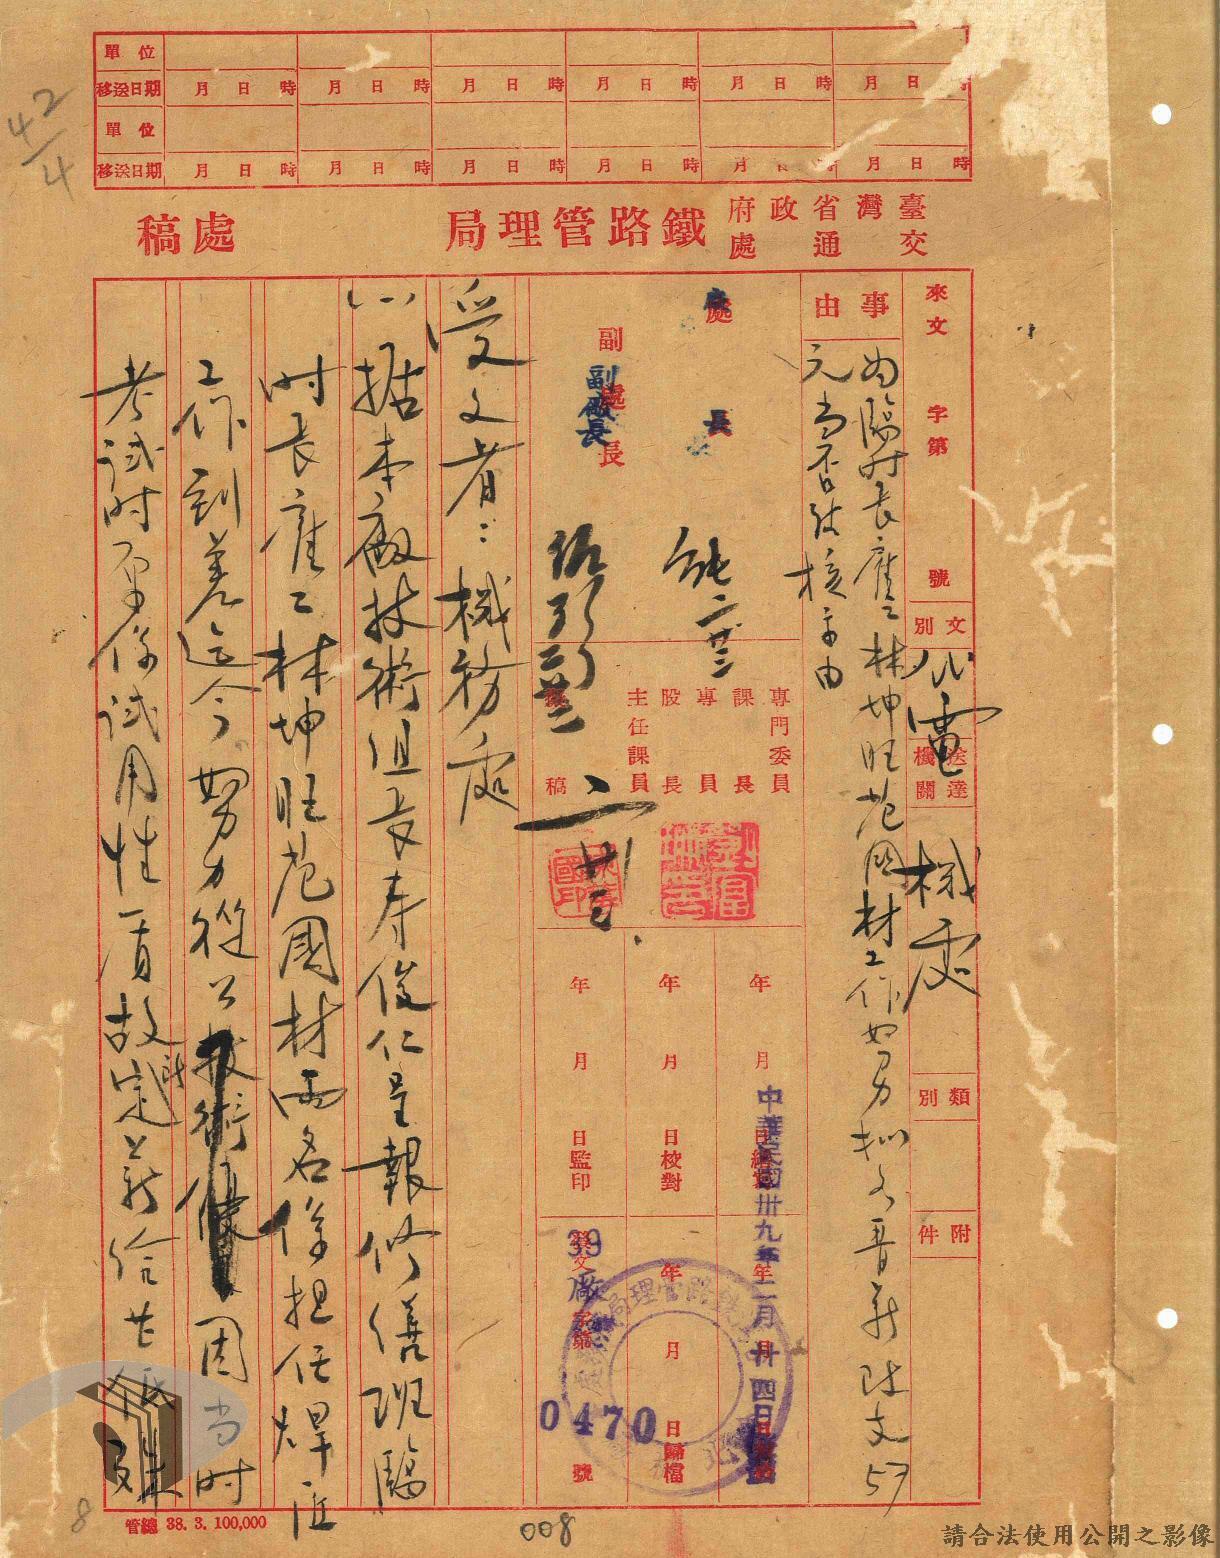 單位
移送日期 月 日 時 月 日 時 月 日 時 月 日 時 月 日 時 月 日 時
單位
移送日期 月 日 時 月 日 時 月 日 時 月 日 時 月 日 時 月 日 時
42/4
臺灣省政府交通處
鐵路管理局
處稿
來文 字第 號
文別 代電
送達機關 機處
類別
附件
事由
為臨时長雇工林坤旺范國材工作如努力拟 晋薪 支57
元当否 核示由
處長
廠長
副處長
副廠長
專門委員
課長
專員
股長
主任課員
擬稿
國印
年 月 日繕寫
年 月 日校對
年 月 日監印
中華民國卅九年二月廿四日
年 月 日歸檔
發文 字第 號
39
廠
0470
受文者：機務處
㈠據本廠技術組長寿俊仁呈報修繕班臨
时長雇工林坤旺范國材兩名係担任焊 
工作到差迄今努力從公 因当时
考試时 係試用性質故 定工薪 
管總 38. 3. 100,000
8
008
請合法使用公開之影像